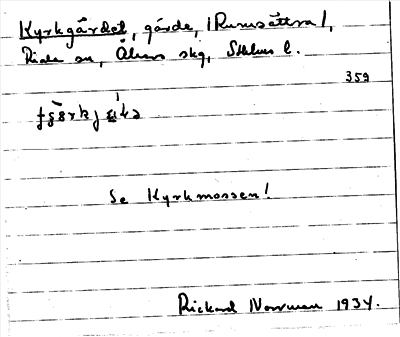 Kyrkgärdet, gärde, (Rumsättra),
Rida sn, Åkers skg, Sthlms l.
359
Se Kyrkmossen!
Rickard Norrman 1934.